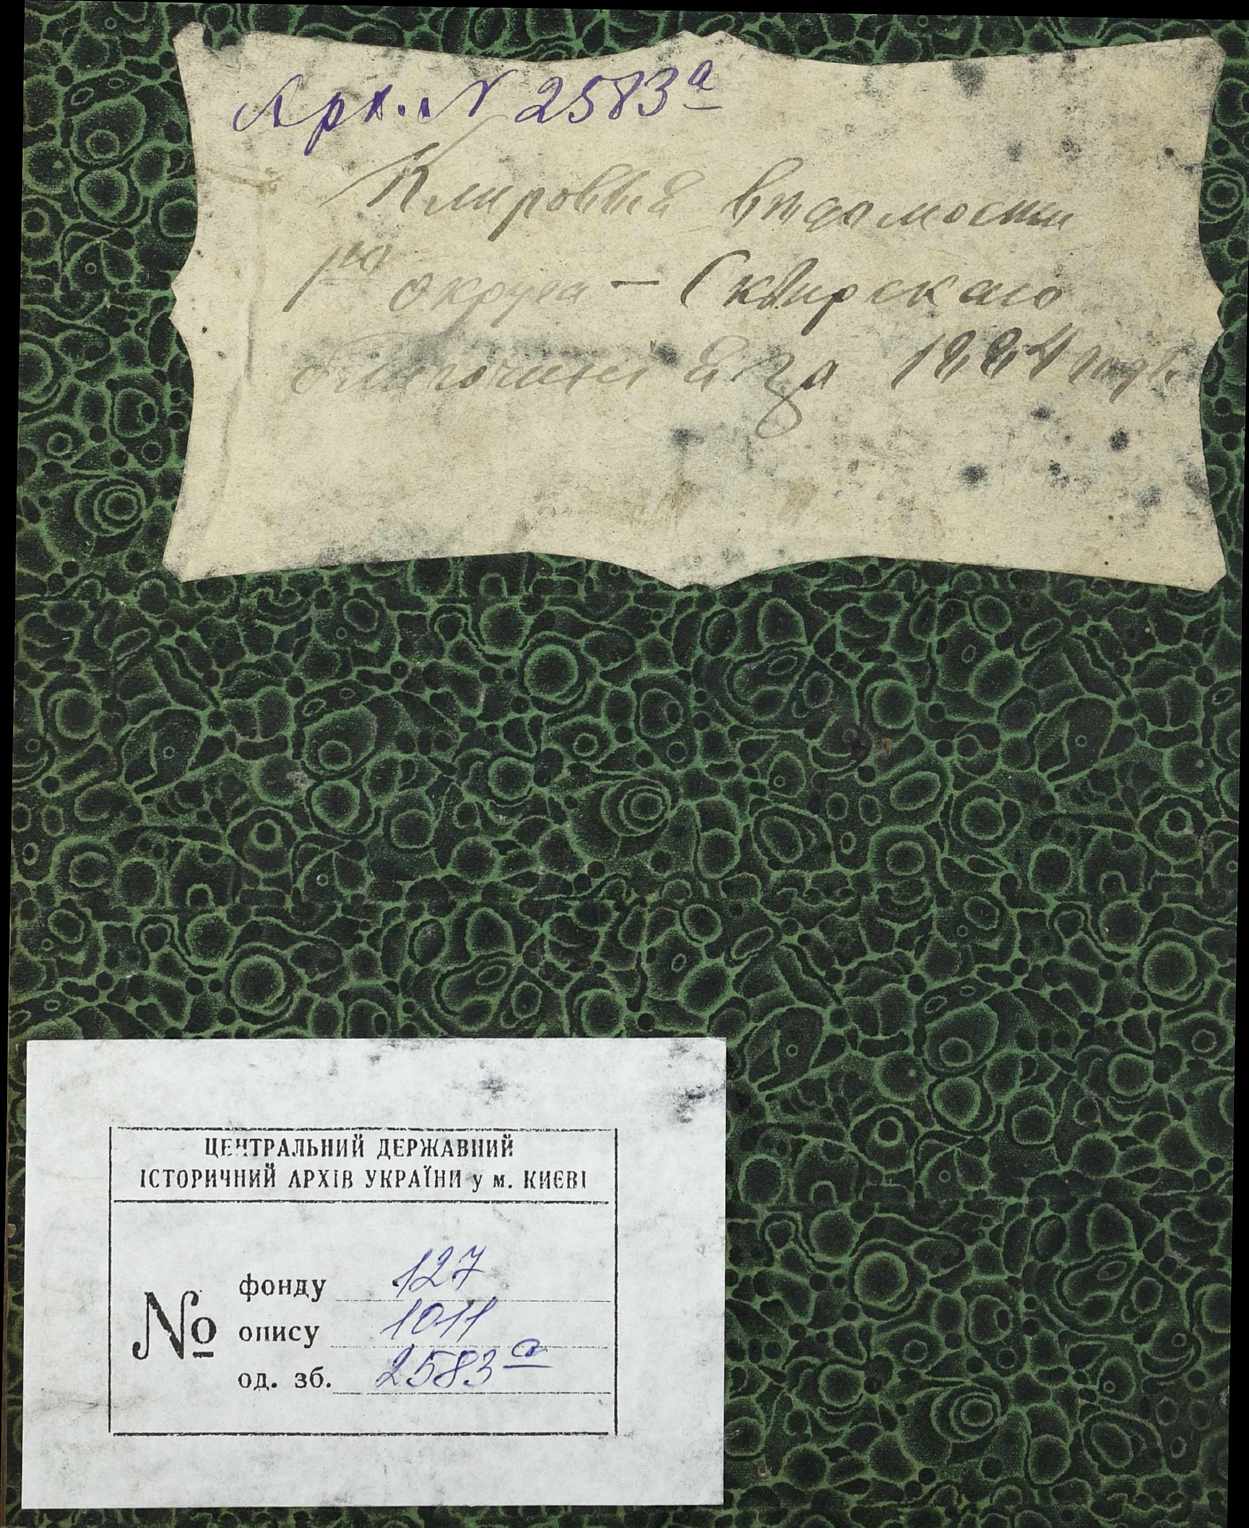 Арх. N 2583а
Клировыя ведомости
1го округа – Сквирскаго
благочинія за 1884 годъ.
ЦЕНТРАЛЬНИЙ ДЕРЖАВНИЙ
ІСТОРИЧНИЙ АРХІВ УКРАЇНИ у м. КИЄВІ
№
фонду 127
опису 1011
од. зб. 2583а